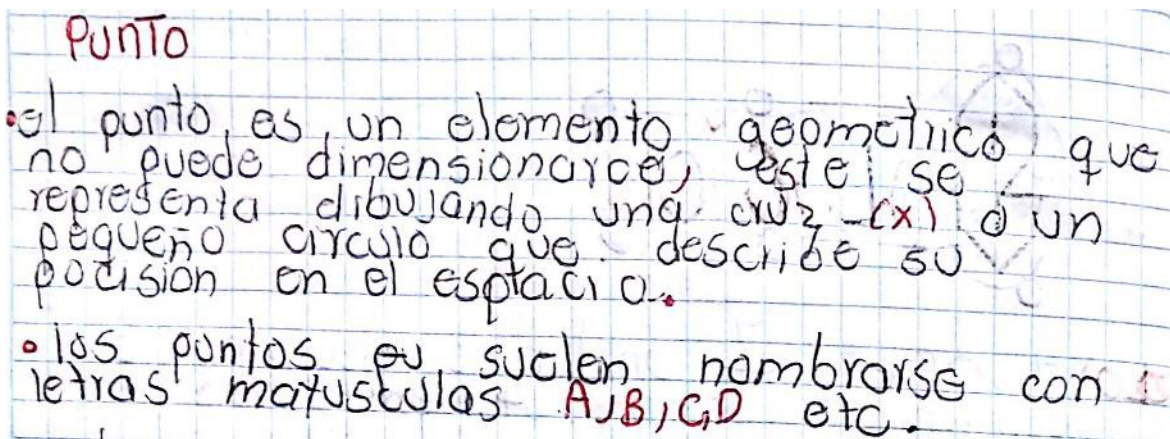 PUNTO
•el punto, es, un elemento geometrico que
no puede dimensionarce, este se
representa dibujando una cruz (x) o un
pequeño circulo que describe su
pocision en el esptacio.
•los puntos eu suelen nombrarse con
letras mayusculas A,B,C,D etc.